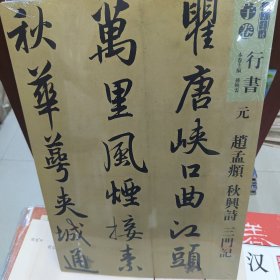 行書
元
趙孟頫 秋興詩 三門記
瞿唐峽口曲江頭
萬里風煙接素
秋華萼夾城通
汉